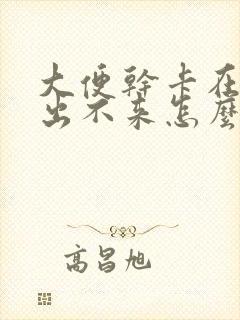 大便幹卡在
出不来怎麼
高昌旭